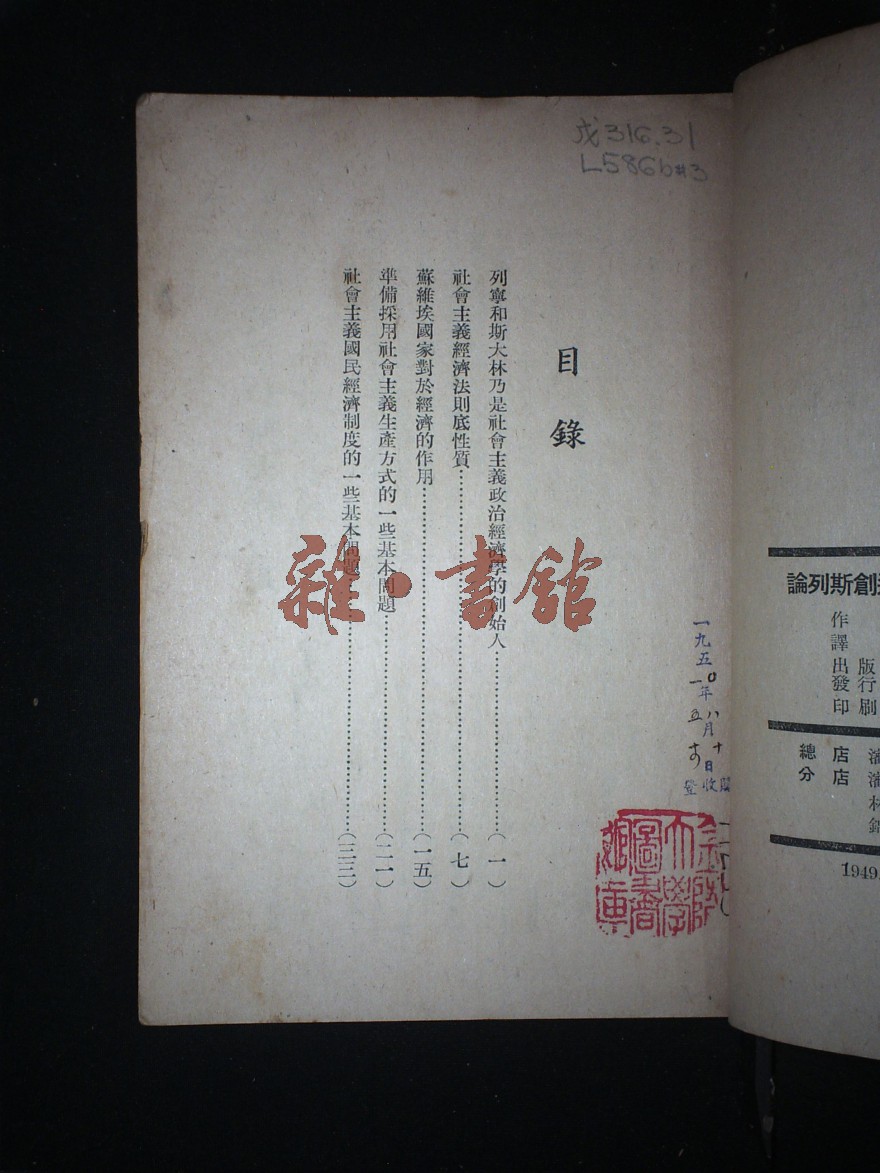 戊316.31
L586b#3
目錄
列寧和斯大林乃是社會主義政治經濟學的創始人……(一)
社會主義經濟法則底性質……(七)
蘇維埃國家對於經濟的作用……(一五)
準備採用社會主義生產方式的一些基本問題……(二一)
社會主義國民經濟制度的一些基本問題……(三三)
雜·書館
一九五〇年八月十日收
大學
圖書
創斯列論
作
譯
出版
發行
印刷
總店
分店
1949